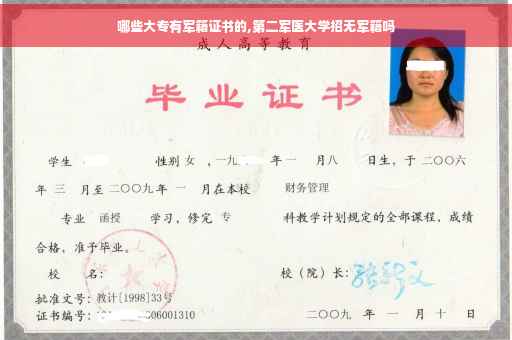 哪些大专有军籍证书的,第二军医大学招无军籍吗
成人高等教育
毕业证书
学生 性别 女 ,一九 年 一 月 八 日生，于二〇〇六
年 三 月至二〇〇九年 一 月在本校 财务管理
专业 函授 学习，修完 专 科教学计划规定的全部课程，成绩
合格，准予毕业。
校 名： 校（院）长：
批准文号：教计[1998]33号
证书编号： 06001310 二〇〇九 年 一 月 十 日